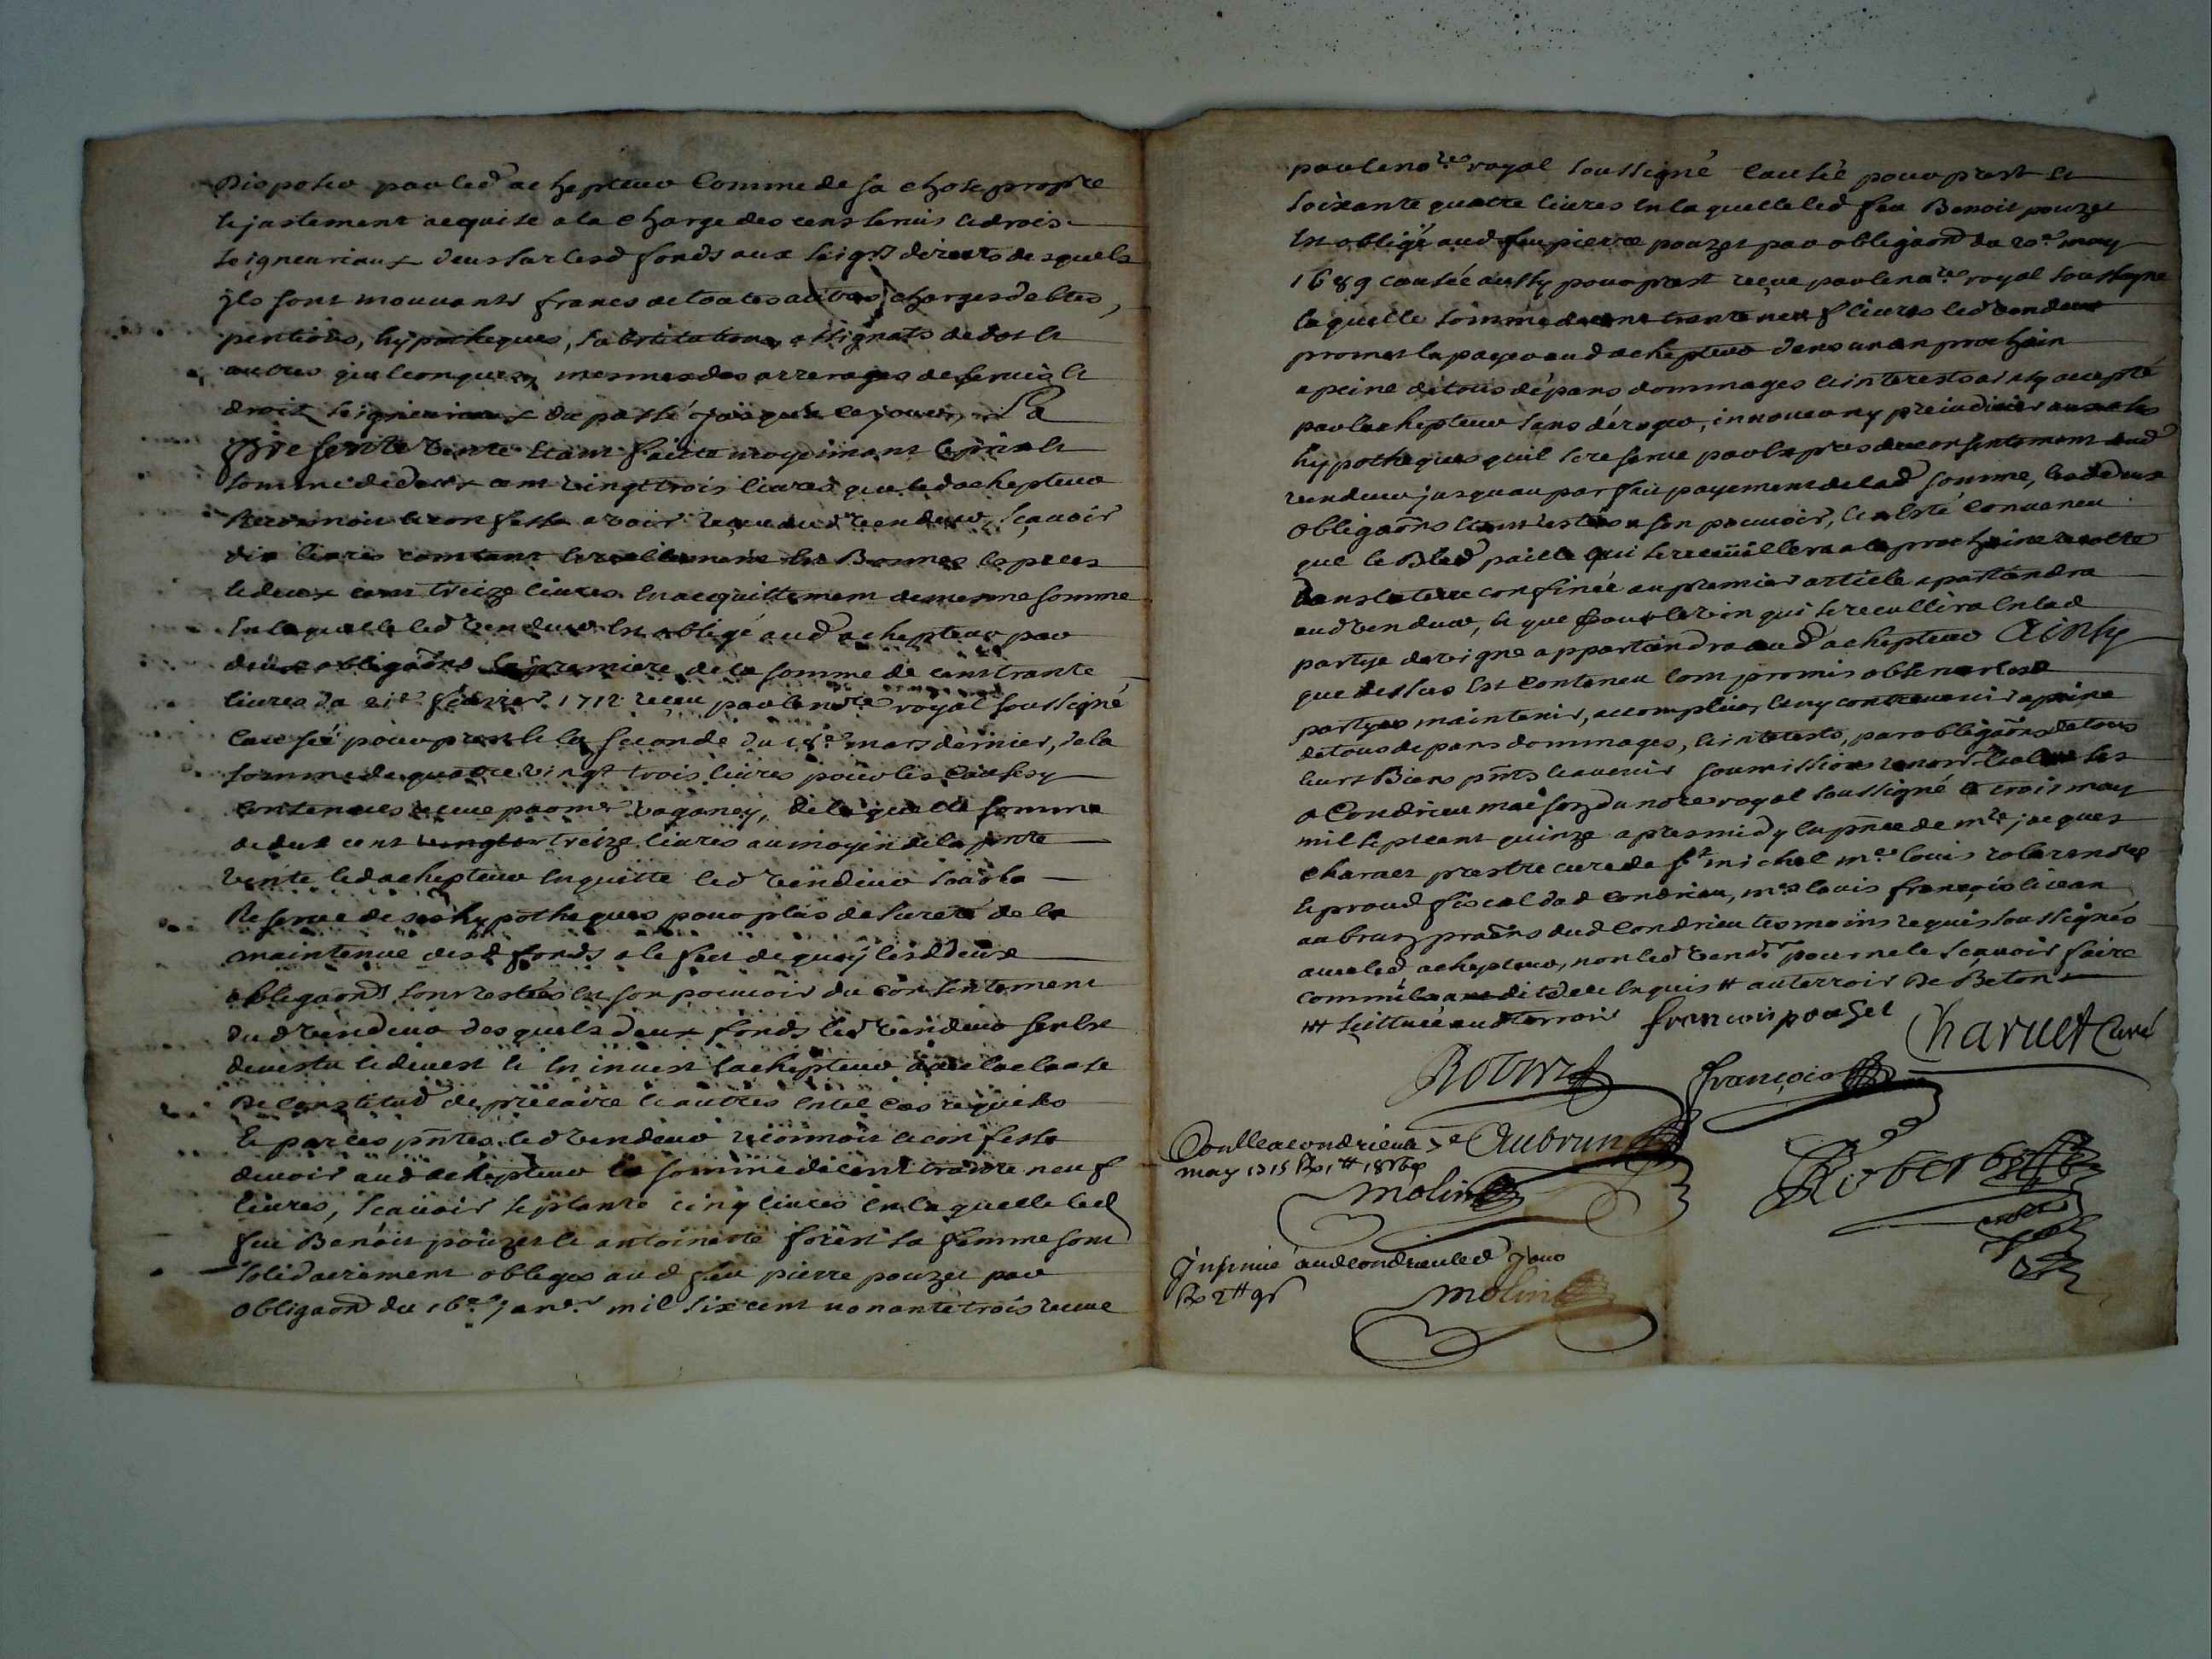 Disposer par led achepteur Comme de sa chose propre
et justement acquise a la charge des cens servis et drois
seigneuriaux deus sur lesd fonds aux seigrs directs desquels
ils sont mouvants francs de toutes autres charges debtes,
pentions, hypotheques, substitutions, assignats de dot et
autres quelconques mesmes des arrerages de servis et
droits seigneuriaux du passé jusqu'a ce jour, La
presente vente etant faicte moyennant le prix et
somme de deux cent vingt trois livres que led achepteur
avoir scavoir
dix livres comtant et reellement en Bonnes especes
et deux cent treize livres en acquittement de mesme somme
en laquelle led vendeur est obligé aud achepteur par
deux obligaons la premiere de la somme de cent trante
livres du 21e fevrier 1712 receu par le nore royal soussigné
causeé pour prest et la seconde du 18e mars dernier, de la
somme de quatre vingt trois livres pour les causes y
contenues receue par me vaganey, de laquelle somme
de deux cent treize livres au moyen de la pnte
vente led achepteur en quitte led vendeur sous la
Reserve de ses hypotheques pour plus de sureté de la
maintenue desd fonds a l'efect de quoy lesd deux
obligaons sont restées en son pouvoir du consentement
dud vendeur desquels deux fonds led vendeur s'en est
devestu et devest et en invest l'achepteur avec la clause
de constitut de precaire et autres en tel cas requises
Et par ces pntes led vendeur reconnoit et confesse
devoir aud achepteur la somme de cent trante neuf
livres, scavoir septante cinq livres en laquelle led
feu Benoit pouzet et antoinette forest sa femme sont
solidairement obliges aud feu pierre pouzet par
obligaon du 16e janer mil six cent nonante trois receue
par le nore royal soussigné causée pour prest et
soixante quatre livres en laquelle led feu Benoit pouzet
est obligé aud feu pierre pouzet par obligaon du 20e may
1689 causée aussy pour prest receue par le nore royal soussigne
laquelle somme de cent trante neuf livres led vendeur
promet la payer aud achepteur dans un an prochain
a peine de tous dépans dommages et interests ainsy accepté
par l'achepteur sans déroger, innover ny preiudicier a ses
hypotheques qu'il se reserve par exprés du consentement dud
vendeur jusqu'au parfait payement de lad somme, lesd deux
obligaons etant restées a son pouvoir, et a esté convenu
que le Bled paille qui se recuillera a la prochaine recolte
Dans la terre confinée au premier article apartiendra
aud vendeur, et que pour le vin qui se recullira en lad
partye de vigne appartiendra aud achepteur Ainsy
que dessus est contenu l'ont promis observer les
partyes maintenir, accomplir, et ny contrevenir a peine
de tous depans dommages, et interests, par obligaons de tous
leurs Biens pnts et avenir soumissions renons et clauses
a Condrieu maison du nore royal soussigné le trois may
mil sept cent quinze apres midy en pnce de mre jacques
charvet prestre curé de st michel me louis
et procur fiscal dud Condrieu, me louis françois et jean
aubrun pratiens dud Condrieu tesmoins requis soussignés
avec led achepteur, non led vendr pour ne le scavoir faire
enquis # au terroir de Beton
## scittuée aud terroir francois pouset
Charvet curé
françois
Conlle a condrieu le 5e Aubrun
may 1715 Rx 1# 18s 6d
molin
Robert
Insinué aud condrieu led jour
Rx 2# 9s
molin